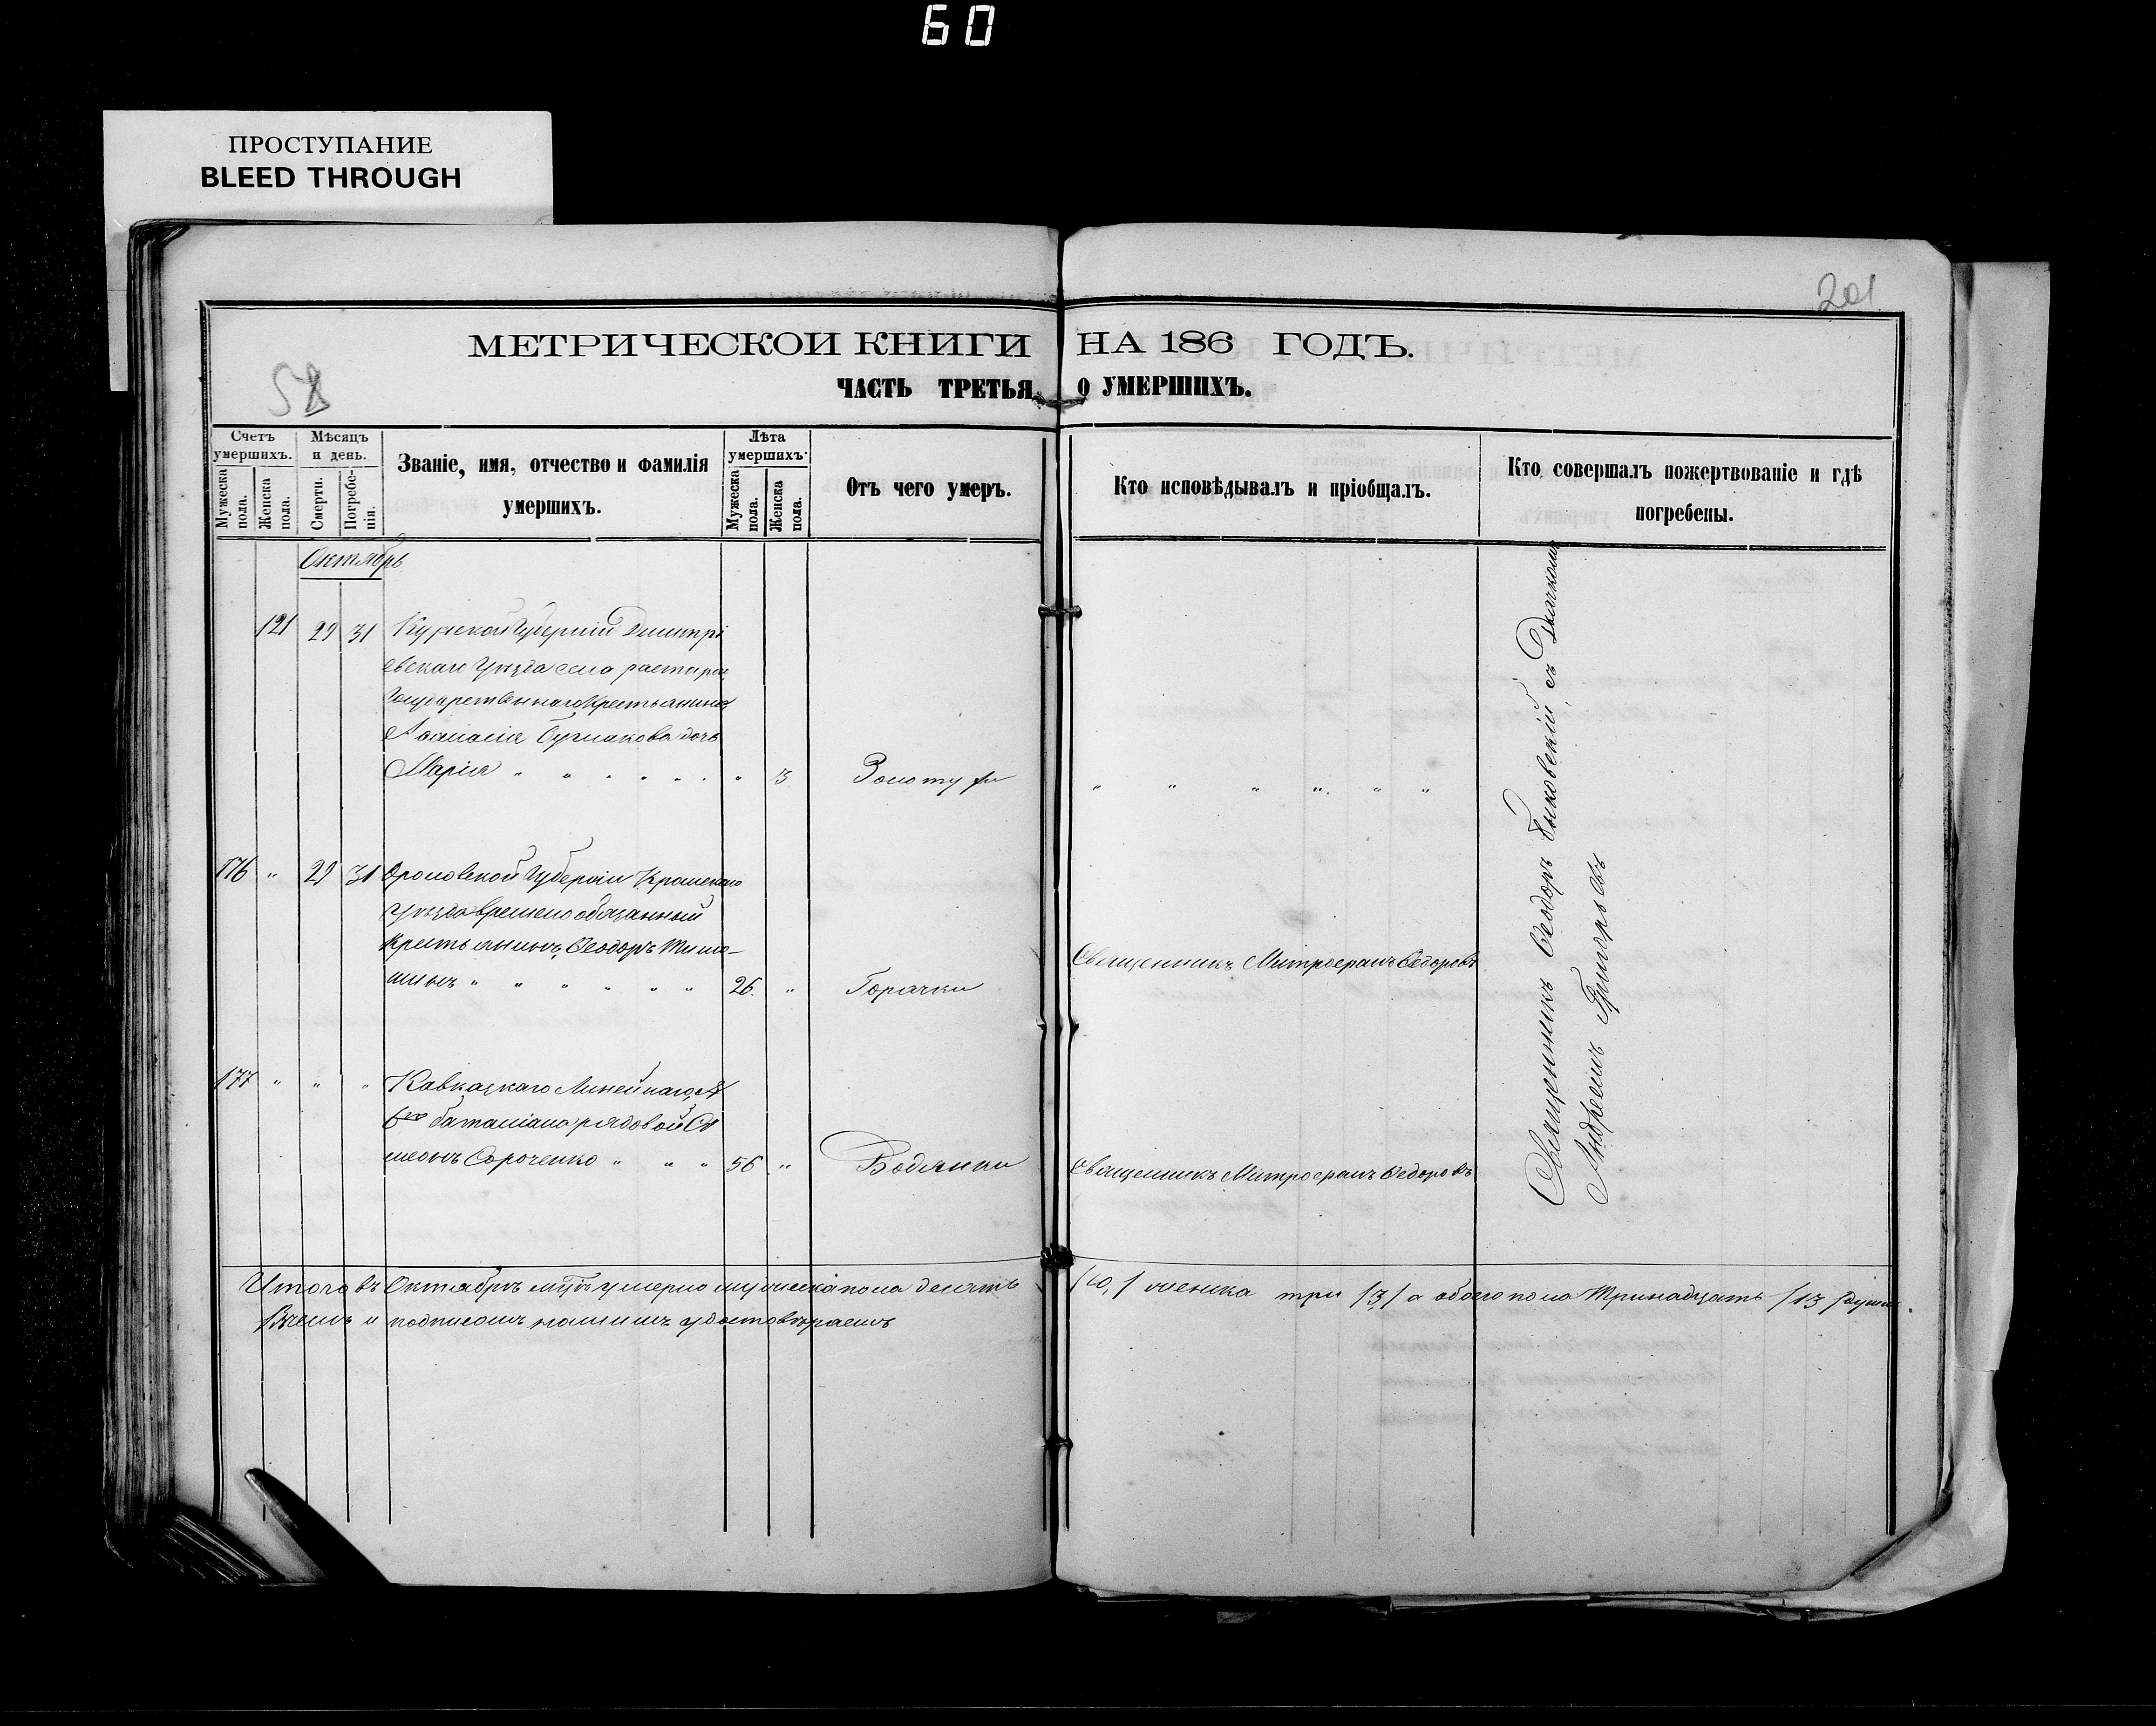 60
ПРОСТУПАНИЕ
BLEED THROUGH
201
58
МЕТРИЧЕСКОЙ КНИГИ НА 186 ГОДЪ.
ЧАСТЬ ТРЕТЬЯ, О УМЕРШИХЪ.
Счетъ умершихъ.
Мужеска пола.
Женска пола.
Мѣсяцъ и день.
Смерти.
Погребенія.
Званіе, имя, отчество и фамилія
умершихъ.
Лѣта умершихъ.
Мужеска пола.
Женска пола.
Отъ чего умеръ.
Кто исповѣдывалъ и пріобщалъ.
Кто совершалъ пожертвованіе и гдѣ
погребены.
Октябрь
121 29 31 Курской Губерніи Дмитрі
евскаго Уѣзда села
Государственнаго Крестьянина
дочь
Марія " " " " " " " 3 Золотухи " " " " " "
176 " 29 31 Орловской Губерніи Кромскаго
Уѣзда временообязанный
Крестьянинъ Ѳеодоръ Тимо-
шинъ " " " " " " 26 " Горячки
Священникъ Митрофанъ Ѳедоровъ
177 " " " Кавказкаго Линейнаго №
6го баталіона рядовой Си
меонъ Сороченко " " " 56 " Водянки Священникъ Митрофанъ Ѳедоровъ
Священникъ Ѳеодоръ Быковскій, съ Дьячкомъ
Андреемъ Григорьевъ
Итого въ Октябрѣ умерло мужеска пола десять /10,/ женска три /3/ а обоего пола тринадцать /13/ душъ.
В чемъ и подписомъ нашимъ удостовѣряемъ